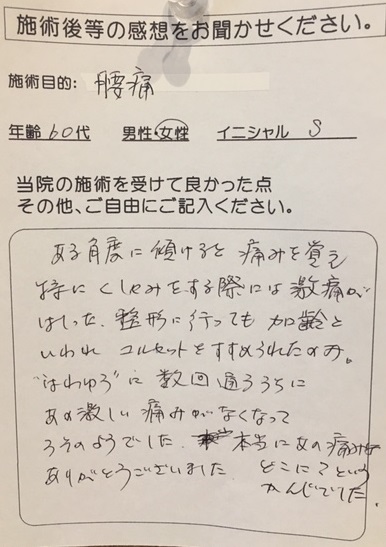 施術後等の感想をお聞かせください。
施術目的: 腰痛
年齢 60代 男性・女性 イニシャル S
当院の施術を受けて良かった点
その他、ご自由にご記入ください。
ある角度に傾けると 痛みを覚え
特に くしゃみをする際には 激痛が
はしった。整形に行っても 加齢と
いわれ コルセットをすすめられたのみ。
"はわゆう"に 数回通ううちに
あの激しい 痛みがなくなって
うそのようでした。本当にあの痛みは
ありがとうございました どこに?という
かんじでした。